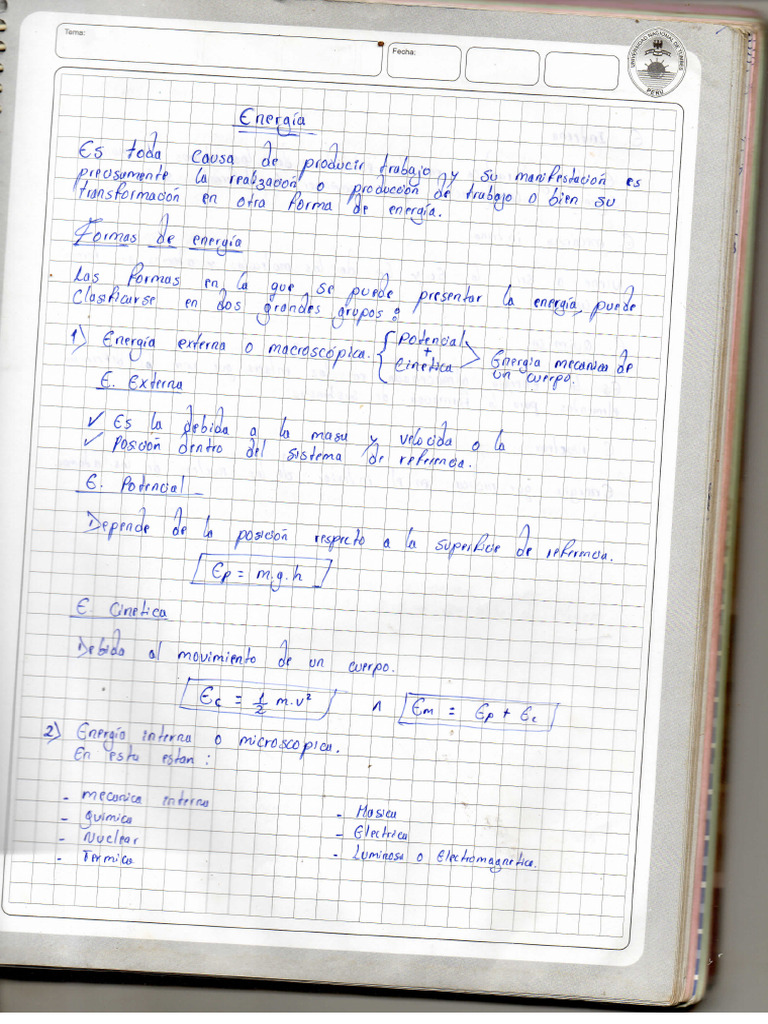 Tema:
Fecha:
UNIVERSIDAD NACIONAL DE TUMBES
PERU
Energía
Es toda causa de producir trabajo y su manifestación es
precisamente la realización o producción de trabajo o bien su
transformación en otra forma de energía.
Formas de energía
Las formas en la que se puede presentar la energía, puede
Clasificarse en dos grandes grupos:
1) Energía externa o macroscópica. { Potencial + Cinética > Energia mecanica de un cuerpo.
E. Externa
✓ Es la debida a la masa y velocida o la
✓ Posición dentro del sistema de referencia.
E. Potencial
Depende de la posición respecto a la superficie de referencia.
Ep = m.g.h
E. Cinetica
Debido al movimiento de un cuerpo.
Ec = 1/2 m.v² ∧ Em = Ep + Ec
2) Energía interna o microscopica.
En esta estan:
- mecanica interna
- Química
- Nuclear
- Termica
- Masica
- Electrica
- Luminosa o Electromagnetica.